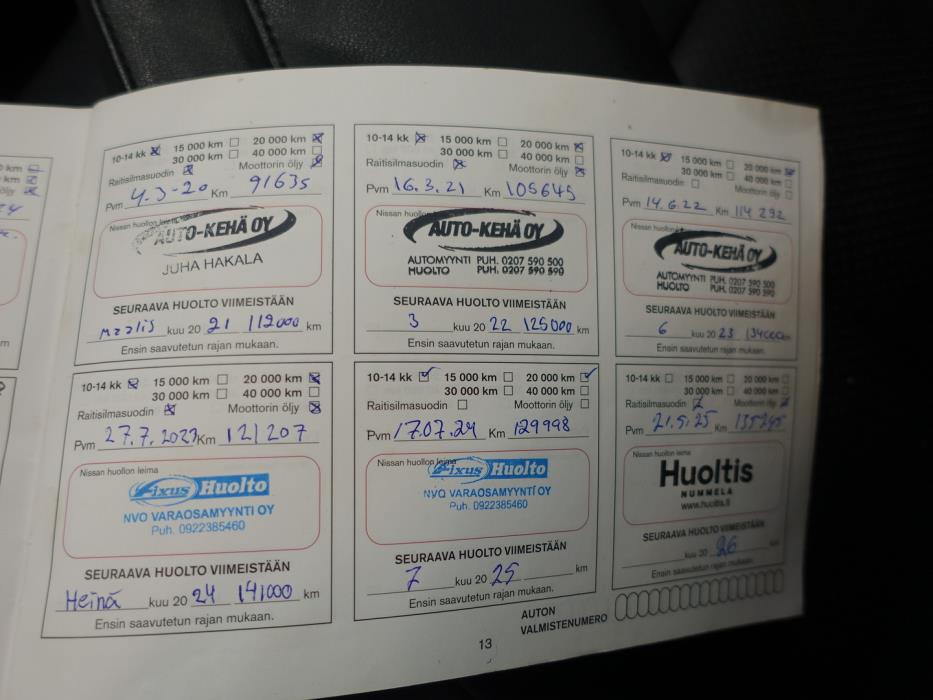 10-14 kk 15 000 km 20 000 km
30 000 km 40 000 km
Raitisilmasuodin Moottorin öljy
Pvm 4.3-20 Km 91635
Nissan huollon leima
AUTO-KEHÄ OY
JUHA HAKALA
SEURAAVA HUOLTO VIIMEISTÄÄN
Maalis kuu 20 21 112000 km
Ensin saavutetun rajan mukaan.
10-14 kk 15 000 km 20 000 km
30 000 km 40 000 km
Raitisilmasuodin Moottorin öljy
Pvm 16.3.21 Km 105645
Nissan huollon
AUTO-KEHÄ OY
AUTOMYYNTI PUH. 0207 590 500
HUOLTO PUH. 0207 590 590
SEURAAVA HUOLTO VIIMEISTÄÄN
3 kuu 20 22 125000 km
Ensin saavutetun rajan mukaan.
10-14 kk 15 000 km 20 000 km
30 000 km 40 000 km
Raitisilmasuodin Moottorin öljy
Pvm 14.6.22 Km 114 292
Nissan huollon
AUTO-KEHÄ OY
AUTOMYYNTI PUH. 0207 590 500
HUOLTO PUH. 0207 590 590
SEURAAVA HUOLTO VIIMEISTÄÄN
6 kuu 20 23 134000 km
Ensin saavutetun rajan mukaan.
10-14 kk 15 000 km 20 000 km
30 000 km 40 000 km
Raitisilmasuodin Moottorin öljy
Pvm 27.7.2023 Km 121207
Nissan huollon leima
Fixus Huolto
NVO VARAOSAMYYNTI OY
Puh. 0922385460
SEURAAVA HUOLTO VIIMEISTÄÄN
Heinä kuu 20 24 141000 km
Ensin saavutetun rajan mukaan.
10-14 kk 15 000 km 20 000 km
30 000 km 40 000 km
Raitisilmasuodin Moottorin öljy
Pvm 17.07.24 Km 129998
Nissan huollon leima
Fixus Huolto
NVO VARAOSAMYYNTI OY
Puh. 0922385460
SEURAAVA HUOLTO VIIMEISTÄÄN
7 kuu 20 25 km
Ensin saavutetun rajan mukaan.
10-14 kk 15 000 km 20 000 km
30 000 km 40 000 km
Raitisilmasuodin Moottorin öljy
Pvm 21.5.25 Km 135245
Nissan huollon leima
Huoltis
NUMMELA
www.huoltis.fi
SEURAAVA HUOLTO VIIMEISTÄÄN
kuu 20 26 km
Ensin saavutetun rajan mukaan.
AUTON
VALMISTENUMERO
13